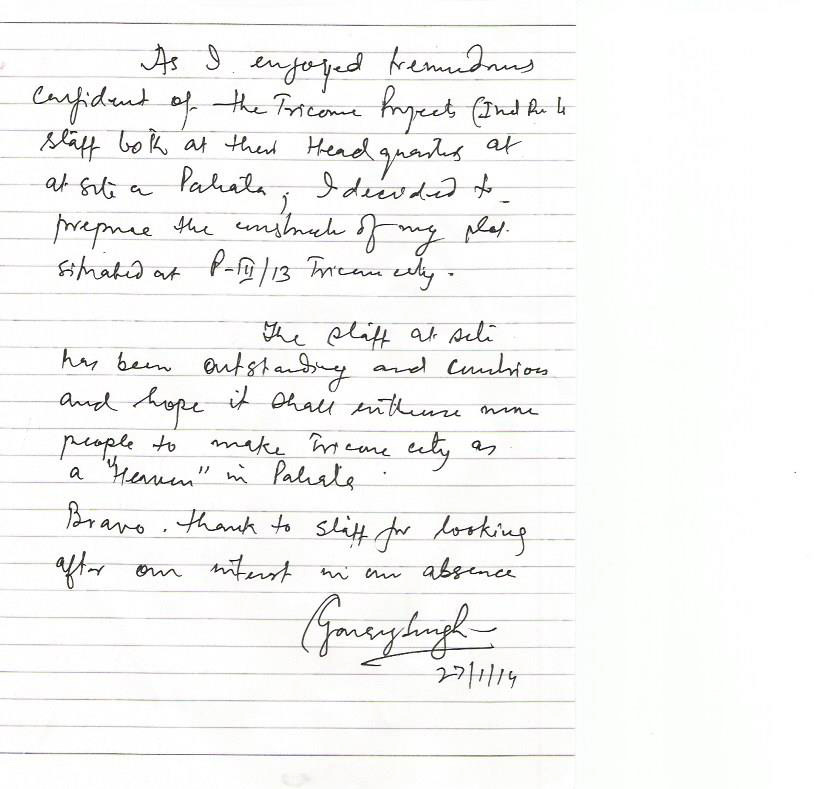 As I enjoyed tremendous
confident of the Tricone Projects (Ind Pvt
staff both at their Headquarters at
at site a Pahala, I decided to
prepare the construct of my plot
situated at P-III/13 Tricone city.
The staff at site
has been outstanding and
and hope it shall enthuse more
people to make Tricone city as
a "Heaven" in Pahala
Bravo. thank to staff for looking
after our interest in our absence
27/1/14